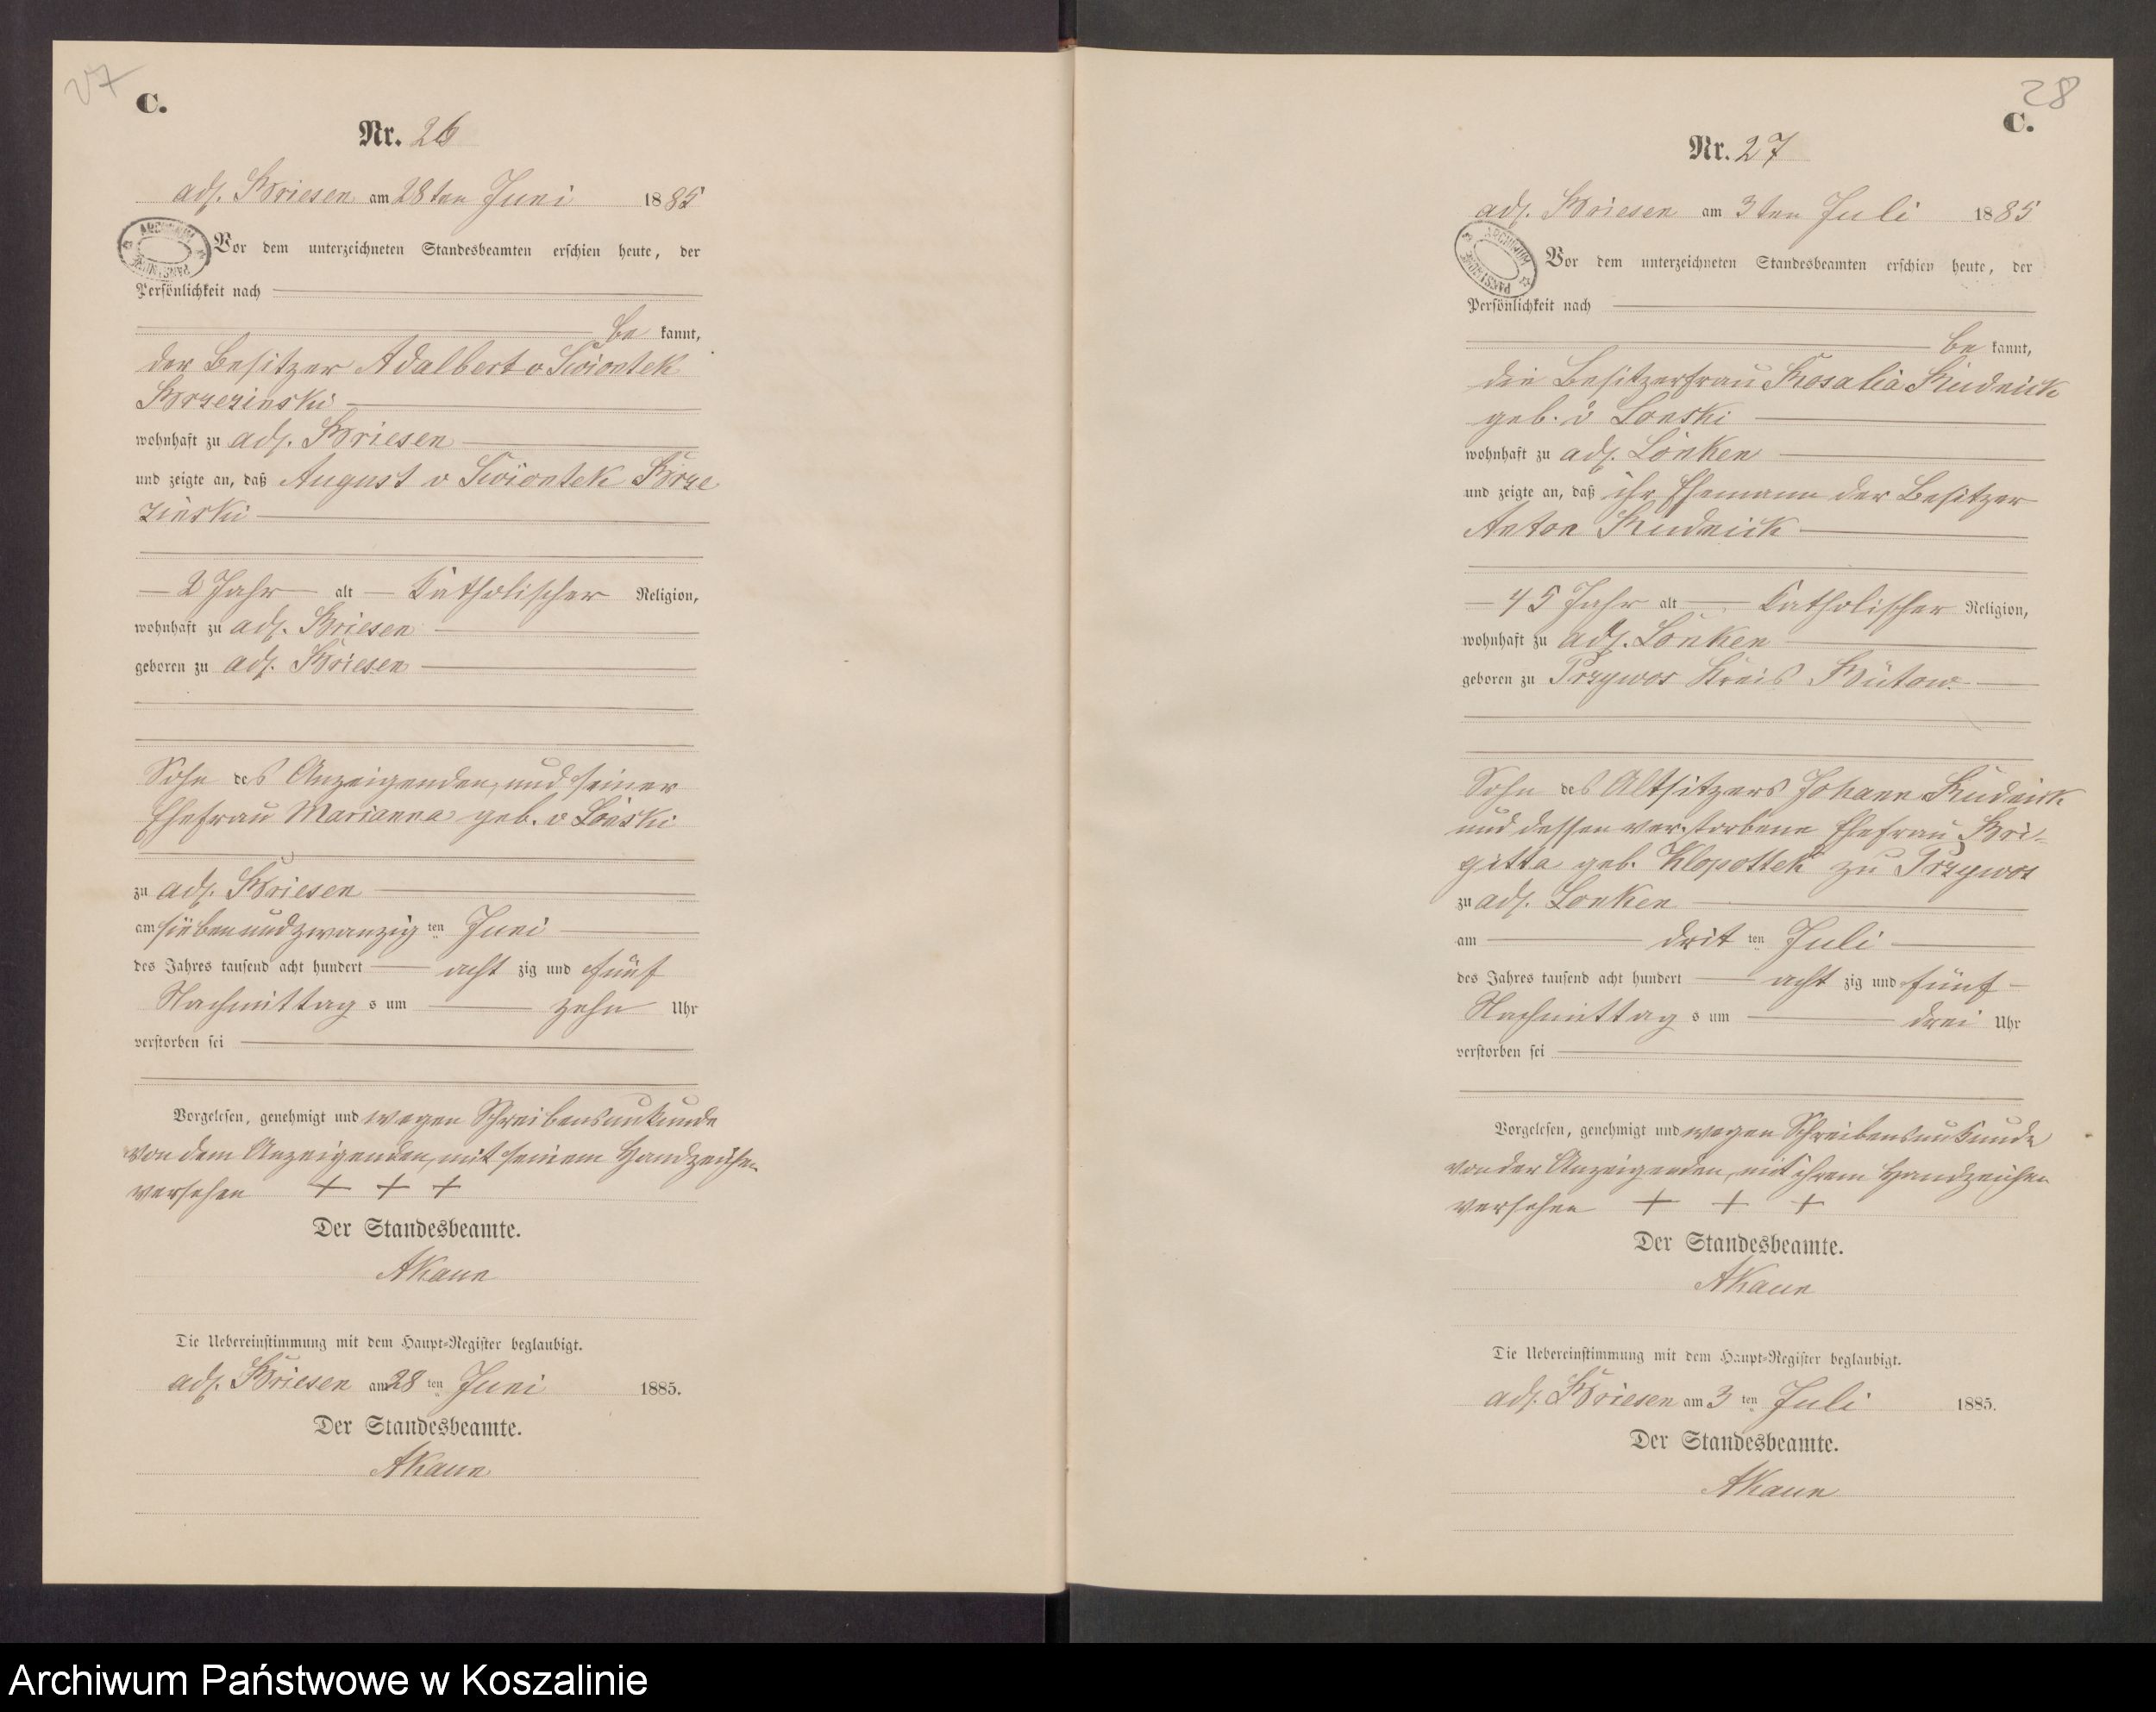 27
C.
Nr. 26
adl. Briesen am 28ten Juni 1885
ARCHIWUM PAŃSTWOWE
Vor dem unterzeichneten Standesbeamten erschien heute, der
Persönlichkeit nach
be kannt,
der Besitzer Adalbert v Swiontek
Brzezinski
wohnhaft zu adl. Briesen
und zeigte an, daß August v Swiontek Brze
zinski
2 Jahr alt Katholischer Religion,
wohnhaft zu adl. Briesen
geboren zu adl. Briesen
Sohn des Anzeigenden, und seiner
Ehefrau Marianna geb. v Lonski
zu adl. Briesen
am siebenundzwanzig ten Juni
des Jahres tausend acht hundert acht zig und fünf
Nachmittag s um zehn Uhr
verstorben sei
Vorgelesen, genehmigt und wegen Schreibensunkunde
von dem Anzeigenden, mit seinem Handzeichen
versehen + + +
Der Standesbeamte.
Die Uebereinstimmung mit dem Haupt-Register beglaubigt.
adl. Briesen am 28 ten Juni 1885.
Der Standesbeamte.
28
C.
Nr. 27
adl. Briesen am 3ten Juli 1885
ARCHIWUM PAŃSTWOWE
Vor dem unterzeichneten Standesbeamten erschien heute, der
Persönlichkeit nach
be kannt,
die Besitzerfrau Rosalia Rudnick
geb. v Lonski
wohnhaft zu adl. Lonken
und zeigte an, daß ihr Ehemann der Besitzer
Anton Rudnick
45 Jahr alt Katholischer Religion,
wohnhaft zu adl. Lonken
geboren zu Przywos Kreis Bütow
Sohn des Altsitzers Johann Rudnick
und dessen verstorbene Ehefrau Bri-
gitta geb. Klopottek zu Przywos
zu adl. Lonken
am drit ten Juli
des Jahres tausend acht hundert acht zig und fünf
Nachmittag s um drei Uhr
verstorben sei
Vorgelesen, genehmigt und wegen Schreibensunkunde
von der Anzeigenden, mit ihrem Handzeichen
versehen + + +
Der Standesbeamte.
Die Uebereinstimmung mit dem Haupt-Register beglaubigt.
adl. Briesen am 3 ten Juli 1885.
Der Standesbeamte.
Archiwum Państwowe w Koszalinie